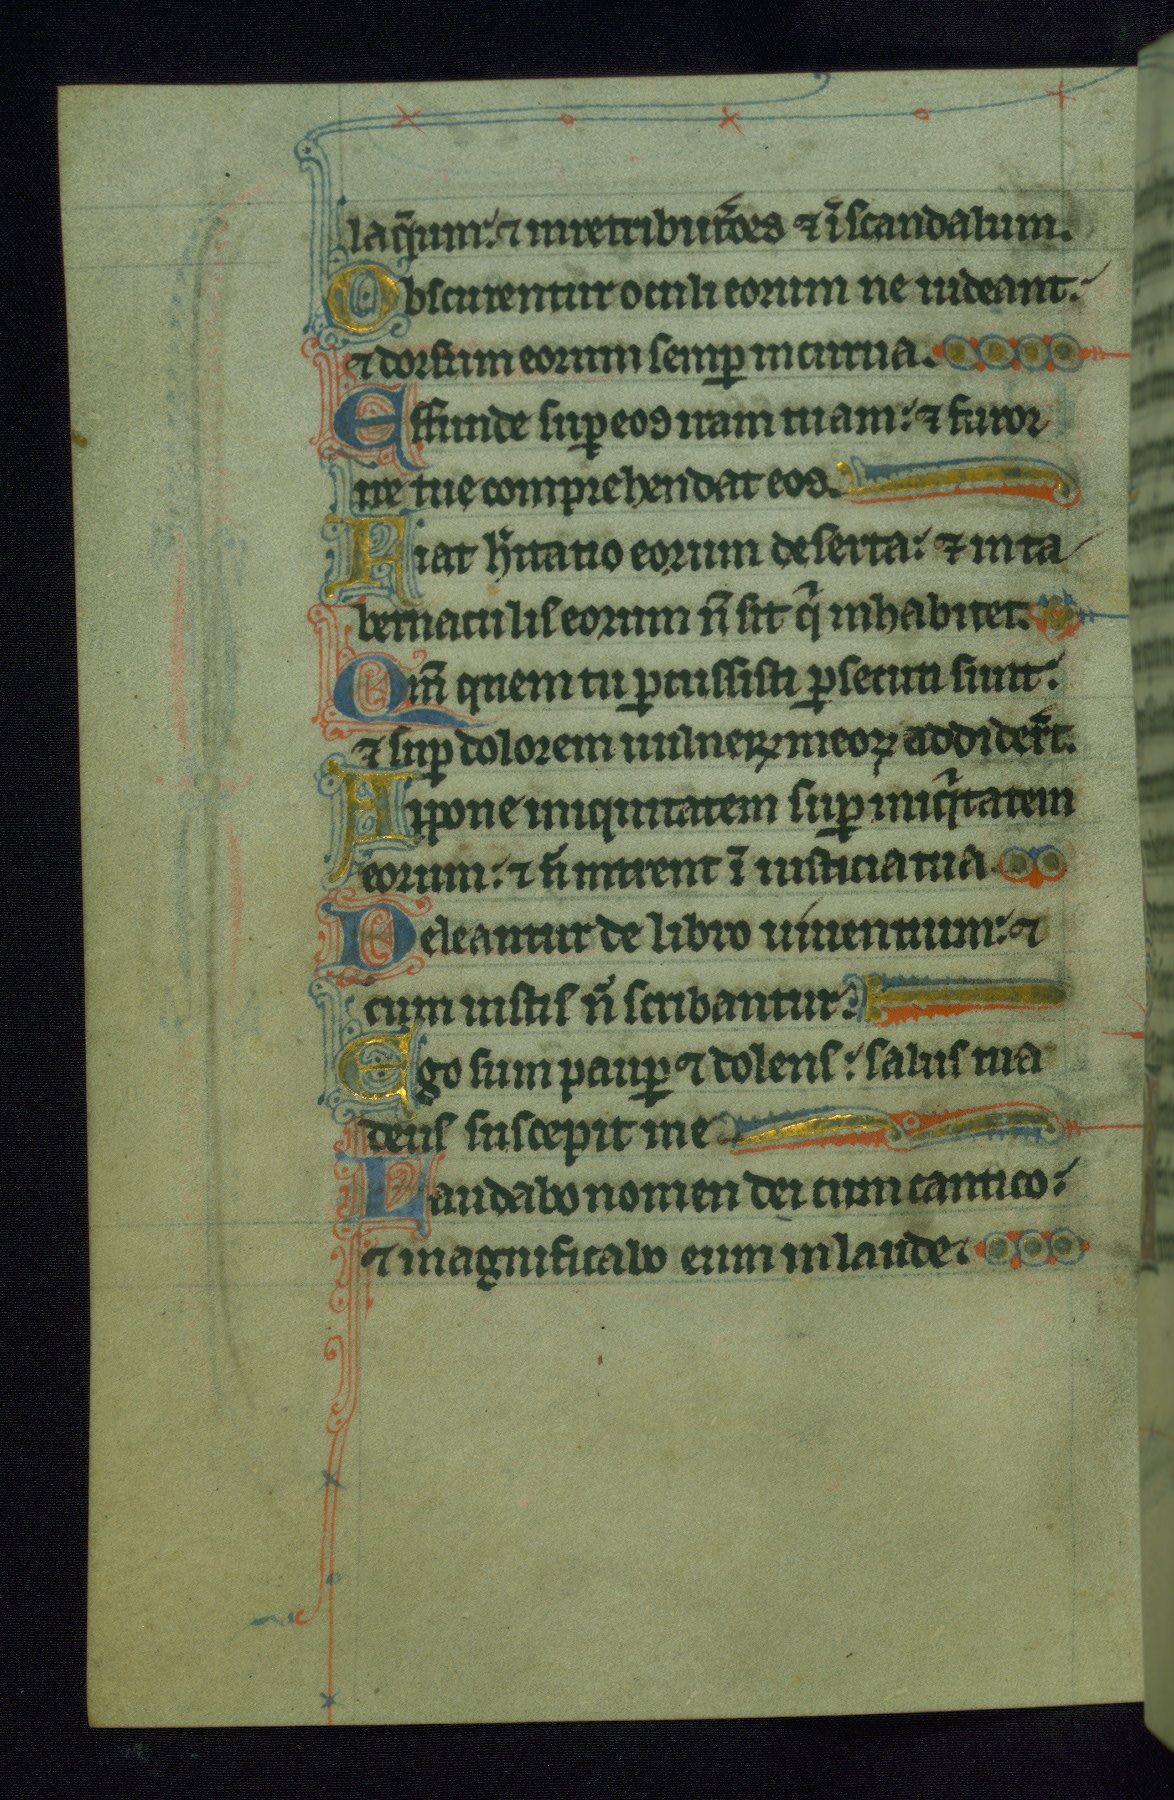 laq̄um: ⁊ in retributōēs ⁊ ī scandalum.
Obscurentur oculi eorum ne uideant:
⁊ dorsum eorum semꝑ incurua.
Effunde suꝑ eos iram tuam: ⁊ furor
ire tue comprehendat eos.
Fiat hitatio eorum deserta: ⁊ in ta
bernaculis eorum n̄ sit qi inhabitet.
Qm̄ quem tu ꝑcussisti ꝑsecuti sunt:
⁊ suꝑ dolorem uulneꝝ meoꝝ addider̄t.
Appone iniquitatem suꝑ iniqitatem
eorum: ⁊ n̄ intrent ī iusticia tua.
Deleantur de libro uiuentium: ⁊
cum iustis n̄ scribantur.
Ego sum pauꝑ ⁊ dolens: salus tua
deus suscepit me
Laudabo nomen dei cum cantico:
⁊ magnificabo eum in laude.